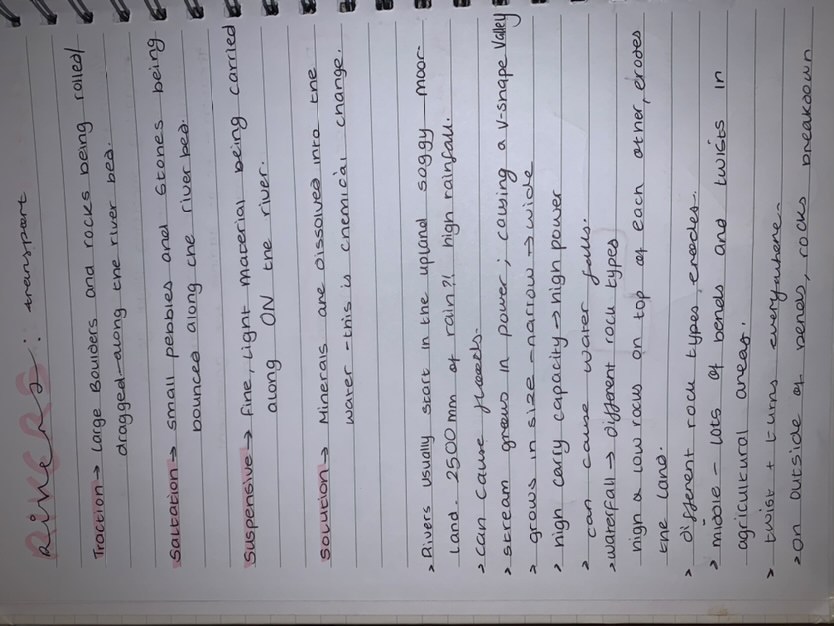 RIVERS
Rivers: transport
Traction → Large Boulders and rocks being rolled/
dragged along the river bed.
Saltation → small pebbles and stones being
bounced along the river bed.
Suspensive → fine, light material being carried
along ON the river.
Solution → Minerals are dissolved into the
water - this is chemical change.
> Rivers usually start in the upland soggy moor-
land. 2500mm of rain?! high rainfall.
> can cause floods.
> stream grows in power; causing a V-shape Valley
> grows in size - narrow → wide
> high carry capacity → high power
> can cause water falls.
> waterfall → different rock types
high & low rocks on top of each other, erodes
the land.
> different rock types erodes.
> middle - lots of bends and twists in
agricultural areas.
> twist + turns everywhere.
> on outside of bends, rocks breakdown